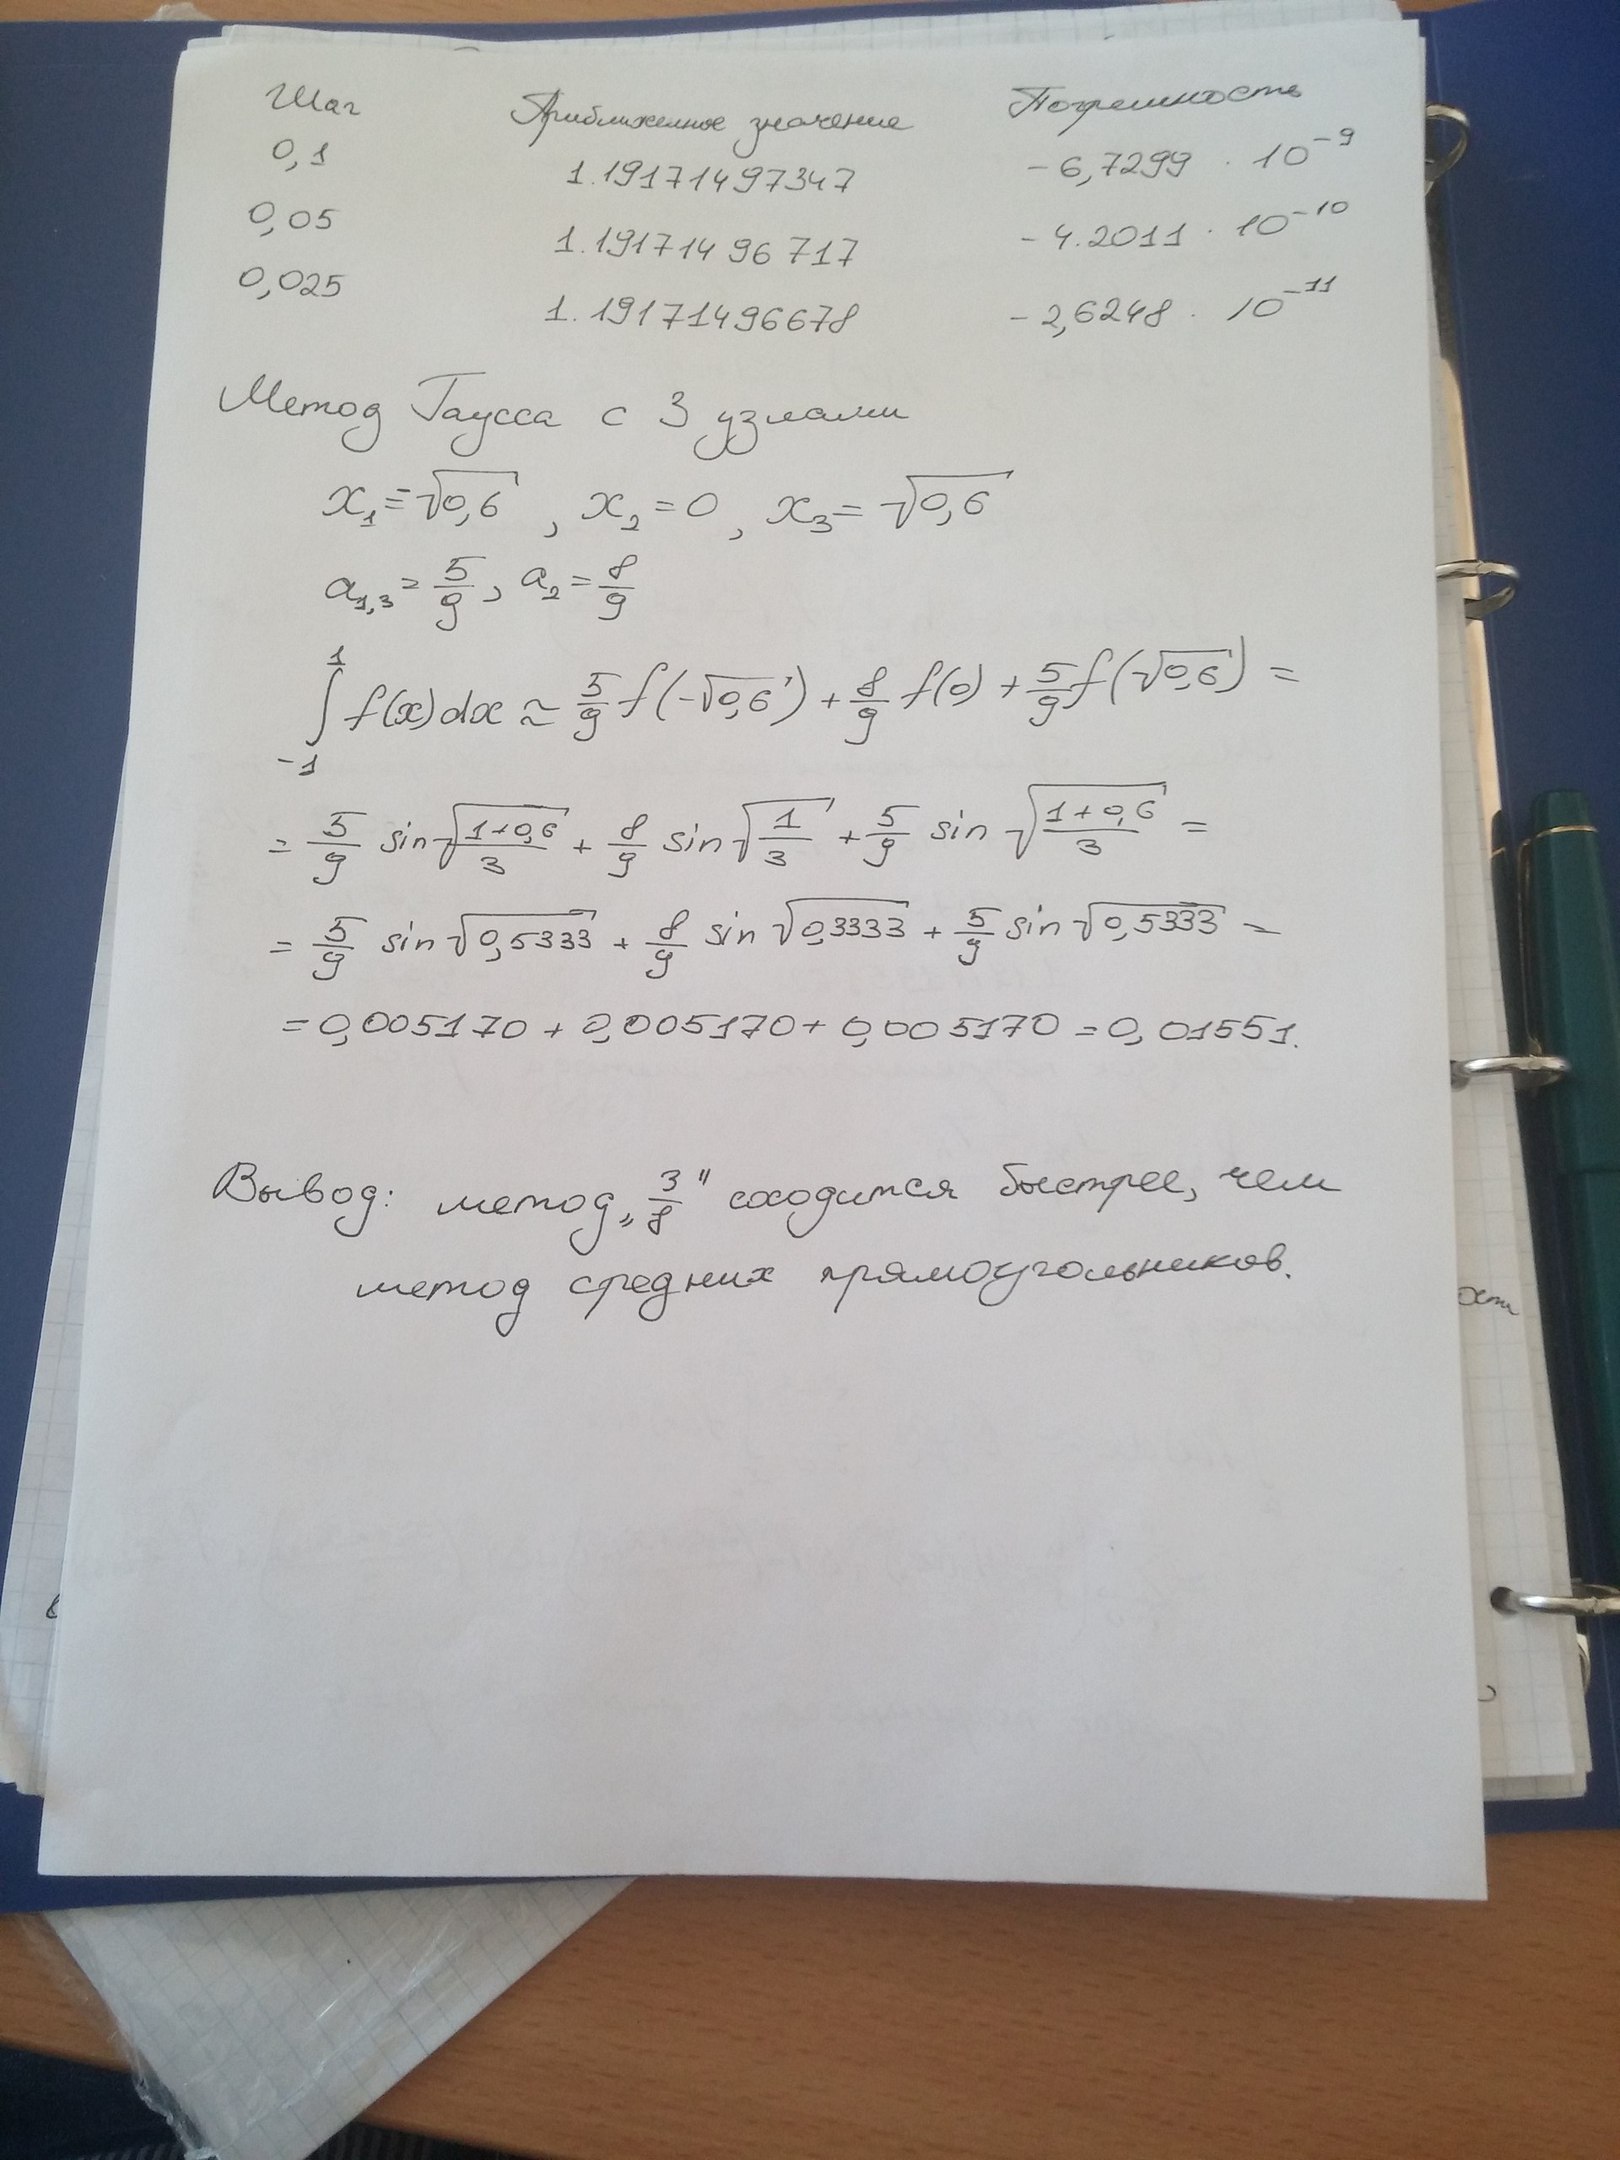 Шаг Приближенное значение Погрешность
0,1 1.19171497347 -6,7299 · 10^-9
0,05 1.19171496717 -4.2011 · 10^-10
0,025 1.19171496678 -2,6248 · 10^-11
Метод Гаусса с 3 узлами
x₁=-√0,6 , x₂=0, x₃=√0,6
a₁,₃=5/9, a₂=8/9
∫₋₁¹ f(x)dx ≈ 5/9 f(-√0,6) + 8/9 f(0) + 5/9 f(√0,6) =
= 5/9 sin√((1+0,6)/3) + 8/9 sin√(1/3) + 5/9 sin√((1+0,6)/3) =
= 5/9 sin√0,5333 + 8/9 sin√0,3333 + 5/9 sin√0,5333 =
= 0,005170 + 0,005170 + 0,005170 = 0,01551.
Вывод: метод „3/8" сходится быстрее, чем
метод средних прямоугольников.
ости